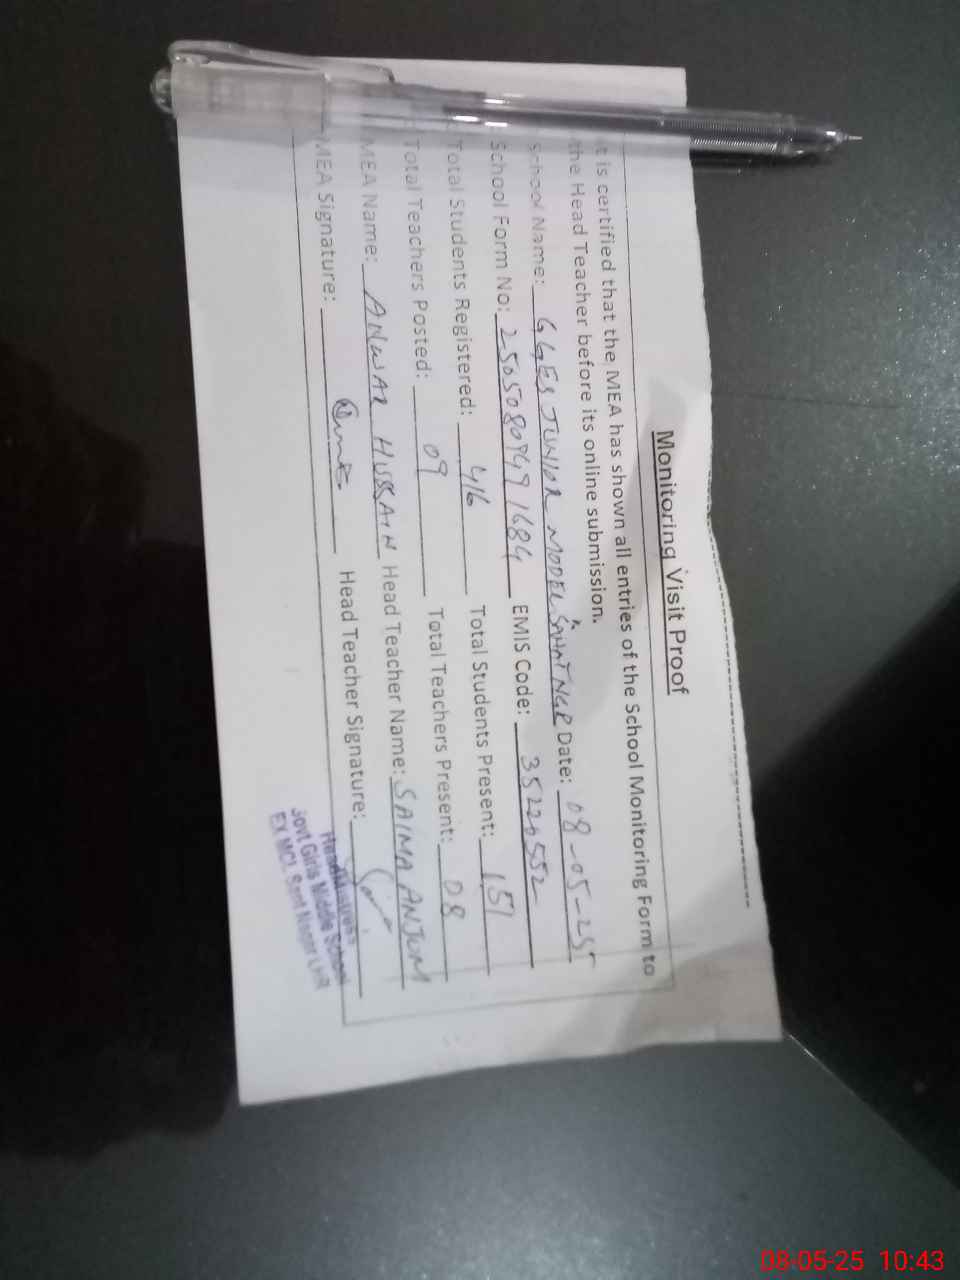 Monitoring Visit Proof
It is certified that the MEA has shown all entries of the School Monitoring Form to
the Head Teacher before its online submission.
School Name: GGES JUNIOR MODEL SANAT NGR Date: 08-05-25
School Form No: 25050809491684 EMIS Code: 35220552
Total Students Registered: 416 Total Students Present: 151
Total Teachers Posted: 09 Total Teachers Present: 08
MEA Name: ANWAR HUSSAIN Head Teacher Name: SAIMA ANJUM
MEA Signature: Head Teacher Signature:
Govt Girls Middle School
EX MCL Sant Nagar LHR
08-05-25 10:43